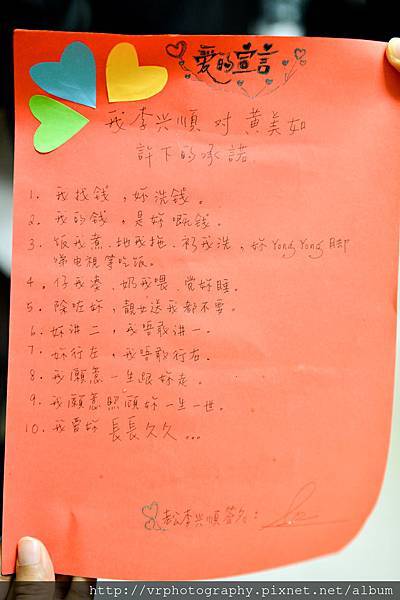 爱的宣言
我李兴順 对 黄美如
許下的承諾
1. 我找錢，妳洗錢。
2. 我的錢，是妳嘅錢。
3. 饭我煮、地我拖、衫我洗，妳 Yong Yong 脚
睇电視等吃饭。
4. 仔我凑、奶我喂、觉妳睡。
5. 除咗妳，靓女送我都不要。
6. 妳讲二，我唔敢讲一。
7. 妳行左，我唔敢行右。
8. 我願意一生跟妳走。
9. 我願意照顧妳一生一世。
10. 我要妳 長長久久...
老公李兴順签名：
http://vrphotography.pixnet.net/album